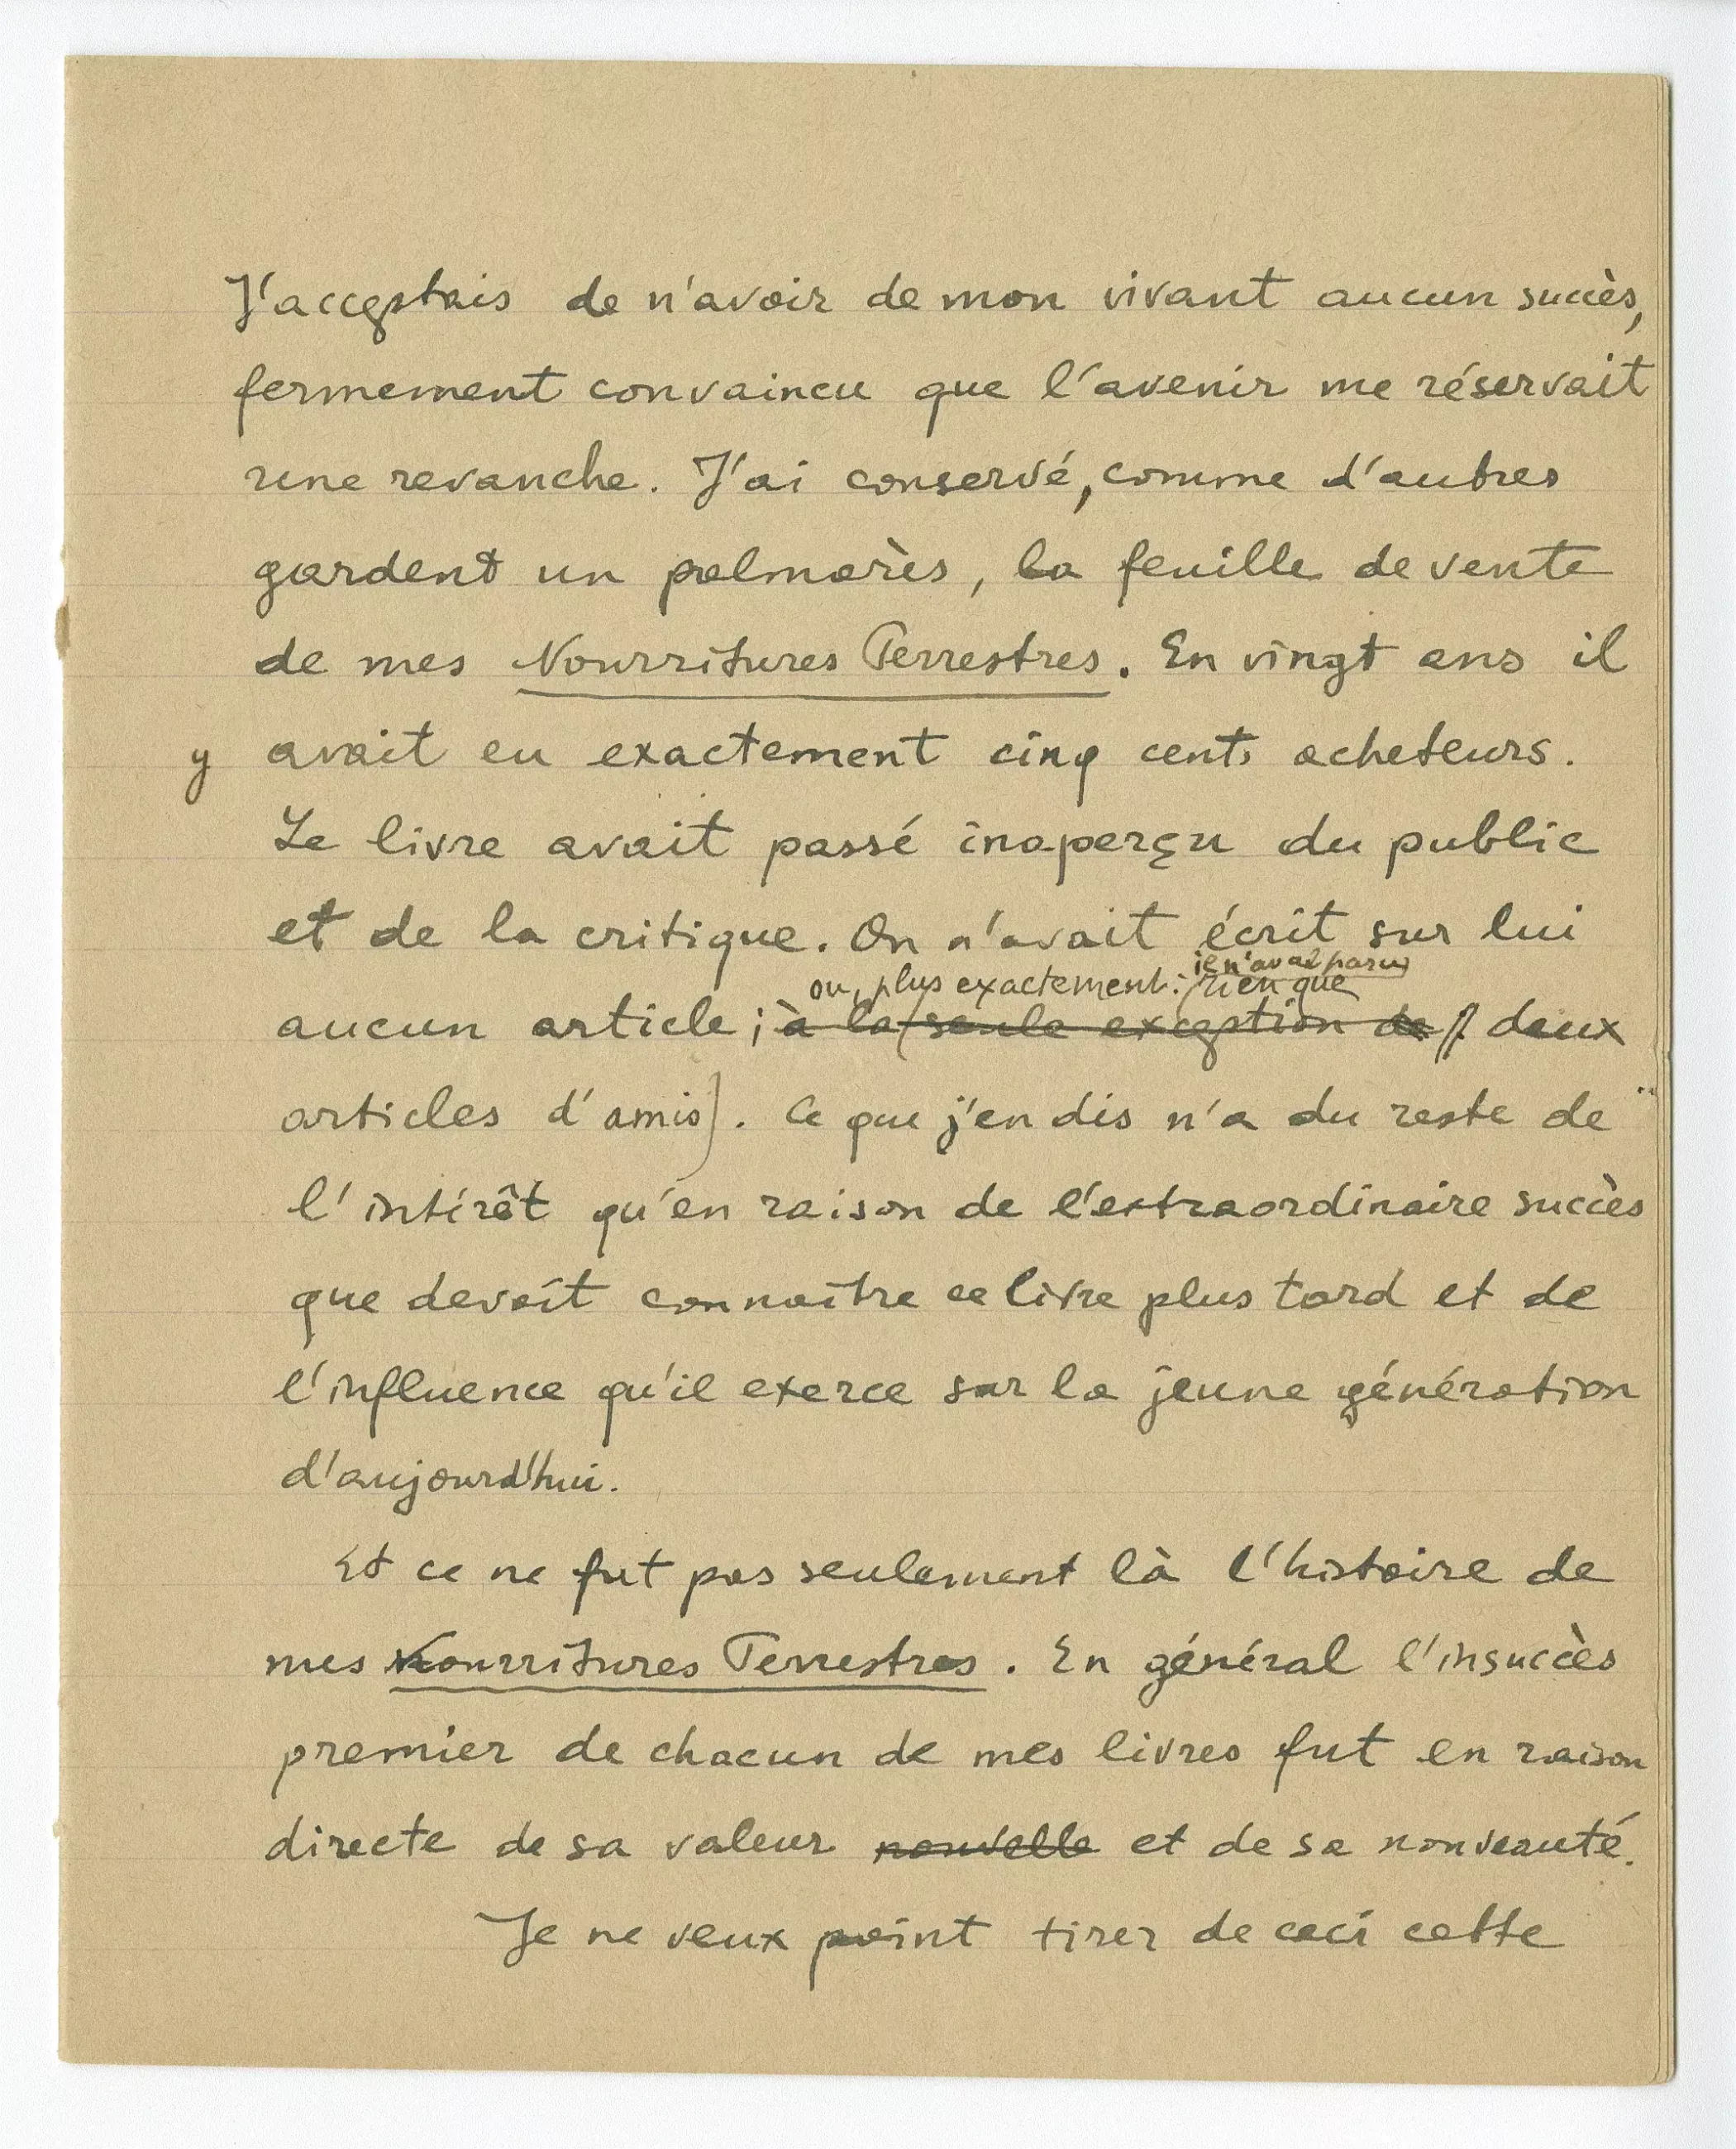 J'acceptais de n'avoir de mon vivant aucun succès,
fermement convaincu que l'avenir me réservait
une revanche. J'ai conservé, comme d'autres
gardent un palmarès, la feuille de vente
de mes Nourritures Terrestres. En vingt ans il
y avait eu exactement cinq cents acheteurs.
Le livre avait passé inaperçu du public
et de la critique. On n'avait écrit sur lui
il n'avait paru
ou, plus exactement : rien que
aucun article ; à la (seule exception de deux
articles d'amis). Ce que j'en dis n'a du reste de
l'intérêt qu'en raison de l'extraordinaire succès
que devait connaître ce livre plus tard et de
l'influence qu'il exerce sur la jeune génération
d'aujourd'hui.
Et ce ne fut pas seulement là l'histoire de
mes Nourritures Terrestres. En général l'insuccès
premier de chacun de mes livres fut en raison
directe de sa valeur nouvelle et de sa nouveauté.
Je ne veux point tirer de ceci cette